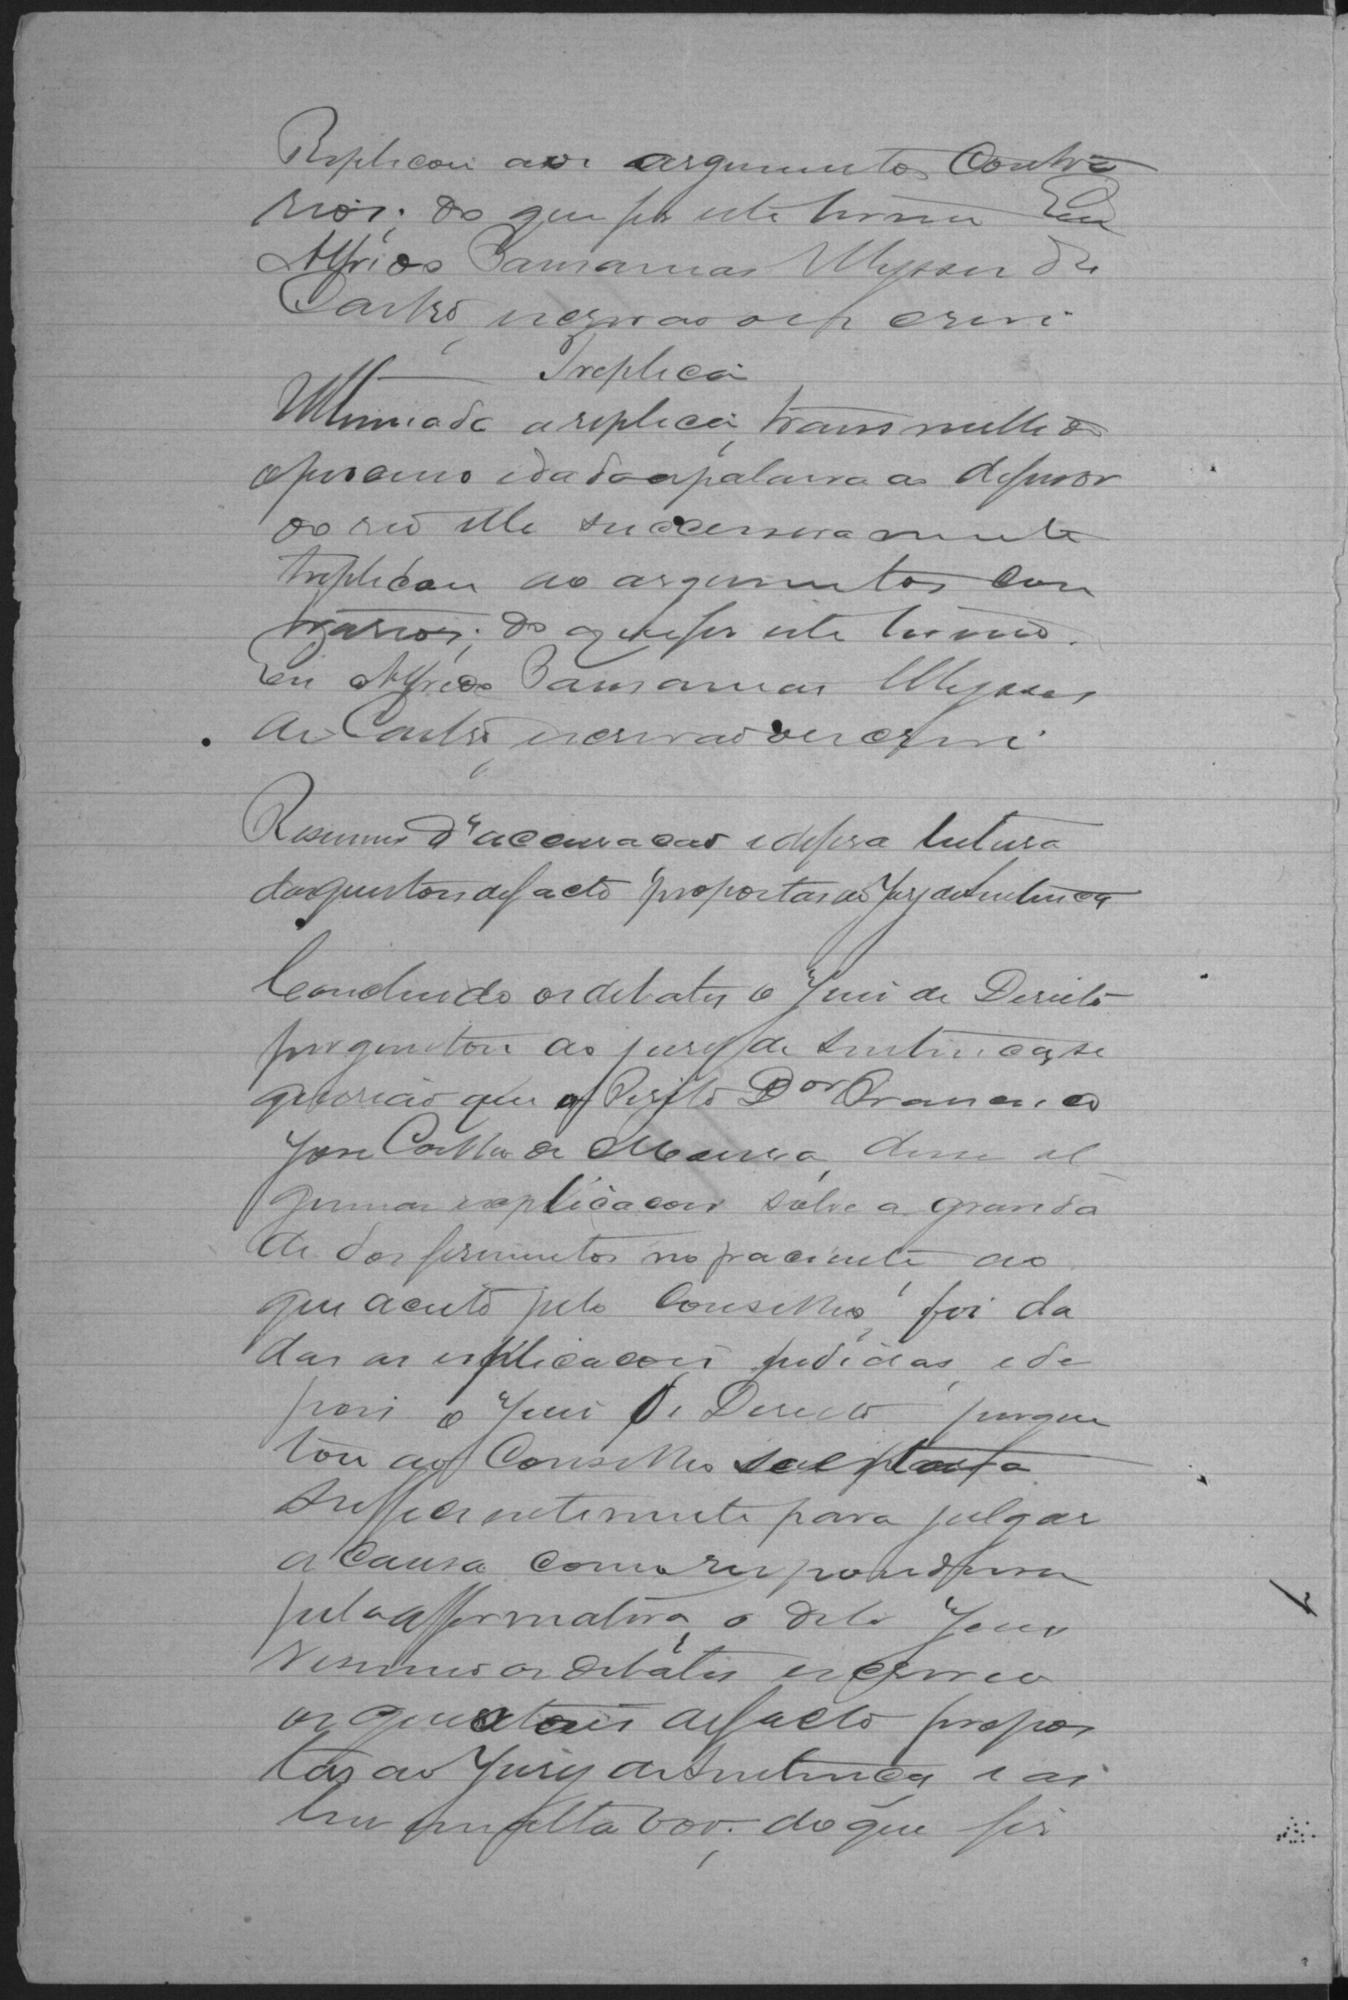 Replicou aos argumentos contra
rios; do que fiz este termo Eu
Alfrêdo Pausanias Ulysses de
Castro, escrivão o escrevi
Treplica
Ultimada a replica, transmittido
o processo e dada a palavra ao defensor
do reo elle successivamente
treplicou aos argumentos con
trarios; do que fiz este termo.
Eu Alfrêdo Pausanias Ulysses
de Castro, escrivão o escrevi
Resumo d'accusação e defesa leitura
das questões de facto propostas ao Jury de Sentença
Concluido os debates o Juiz de Direito
perguntou ao jury de Sentença se
querião que o Perito Dor Francisco
José Coelho de Moura, desse al
gumas explicações sobre a gravida
de dos ferimentos no paciente ao
que aceito pelo Conselho, foi da
das as explicações pedidas, e de
pois o Juiz de Direito pergun
tou ao Conselho se estava
sufficientemente para julgar
a causa como respondessem
pela affirmativa, o dito Juiz
resumio os debates escreveo
as questões de facto propos
tas ao Jury de Sentença e as
leu em alta voz; do que fiz